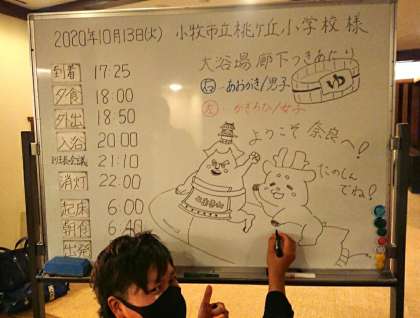 2020年10月13日(火) 小牧市立桃ヶ丘小学校 様
到着 17:25
夕食 18:00
外出 18:50
入浴 20:00
班長会議 21:10
消灯 22:00
起床 6:00
朝食 6:40
出発
大浴場 廊下つきあたり
右-あおがき/男子
左-かきもみじ/女子
ゆ
ようこそ 奈良へ!
たのしんでね!